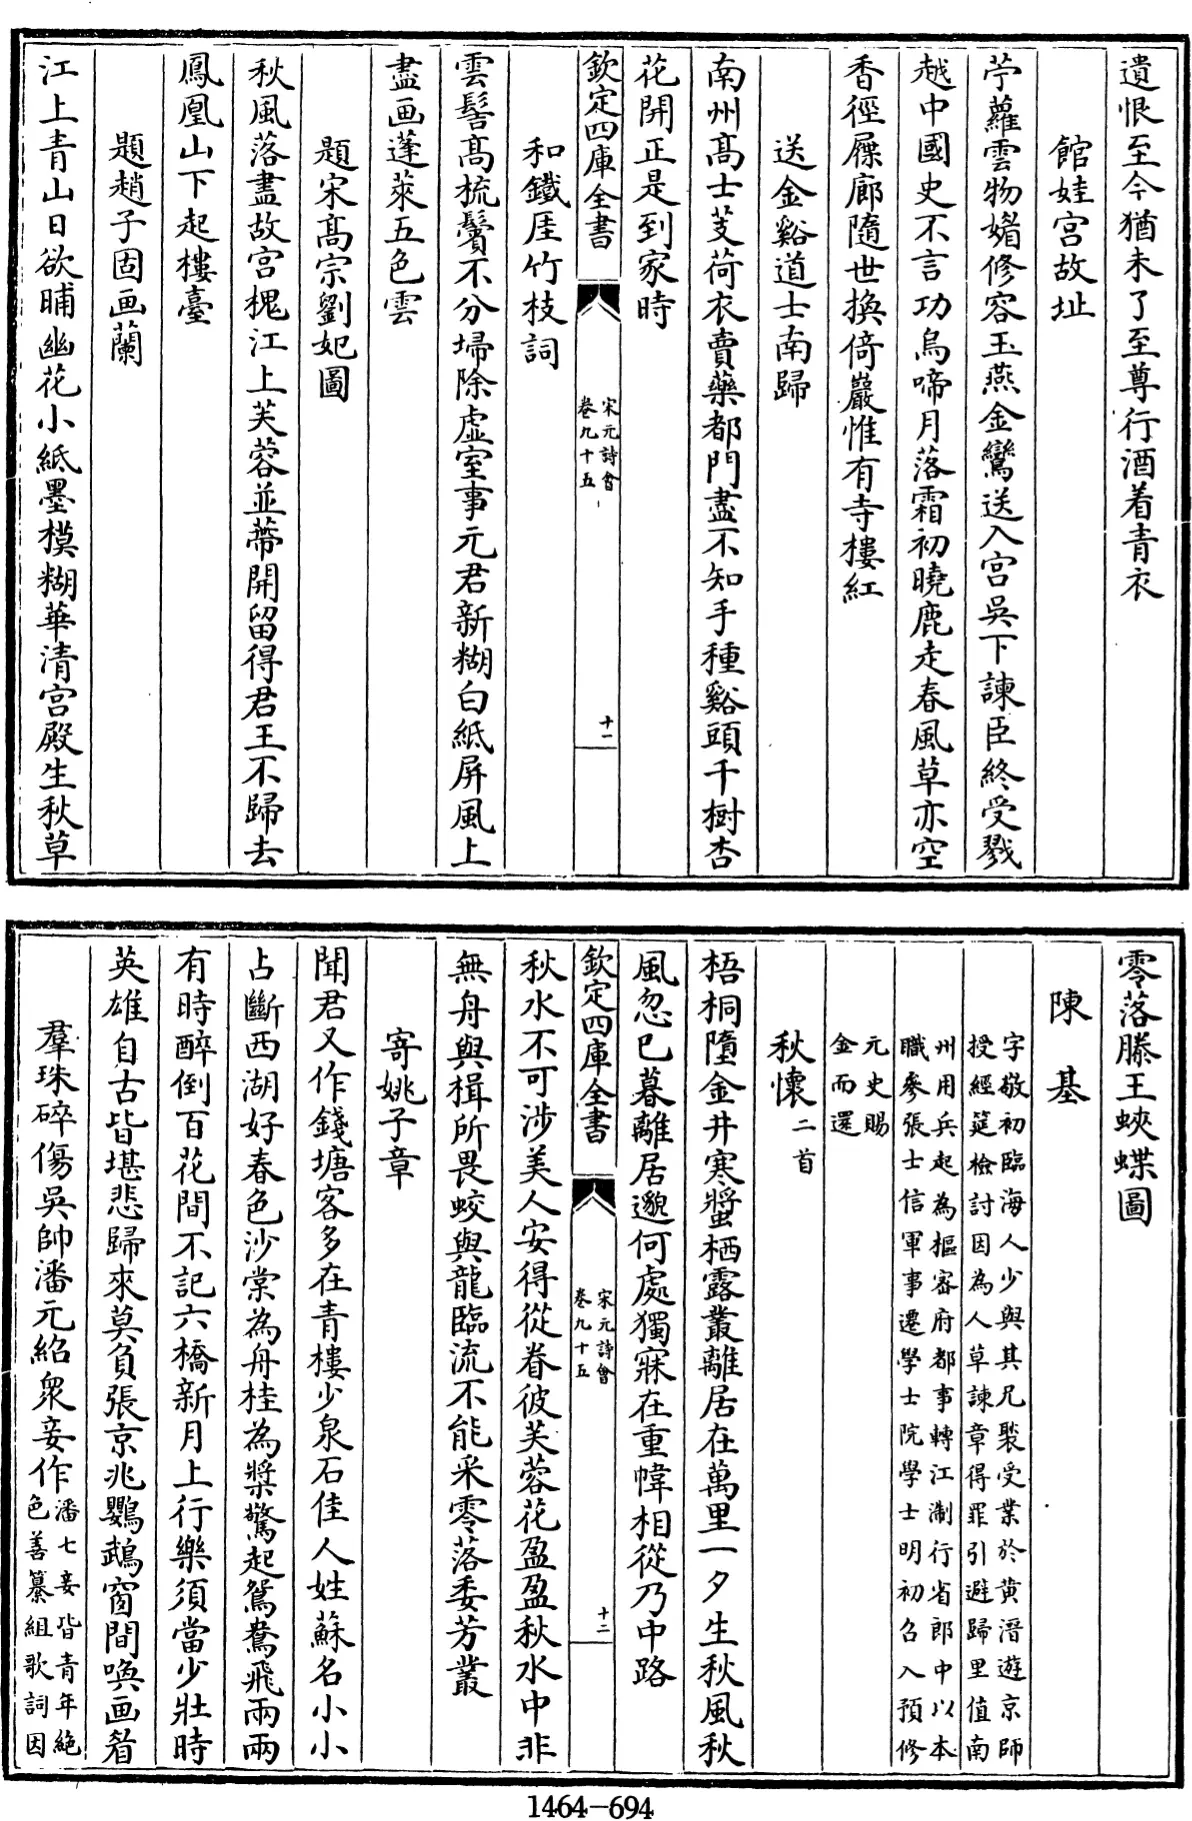 遺恨至今猶未了至尊行酒着青衣
館娃宫故址
苧蘿雲物媚修容玉燕金鸞送入宫吳下諫臣終受戮
越中國史不言功烏啼月落霜初曉鹿走春風草亦空
香徑屧廊隨世換倚巖惟有寺樓紅
送金谿道士南歸
南州髙士芰荷衣賣藥都門盡不知手種谿頭千樹杏
花開正是到家時
欽定四庫全書
宋元詩會
卷九十五
十一
和鐵厓竹枝詞
雲髻髙梳鬢不分埽除虚室事元君新糊白紙屏風上
盡画蓬萊五色雲
題宋髙宗劉妃圖
秋風落盡故宫槐江上芙蓉並蔕開留得君王不歸去
鳳凰山下起樓臺
題趙子固画蘭
江上青山日欲晡幽花小紙墨模糊華清宫殿生秋草
零落滕王蛺蝶圖
陳基
字敬初臨海人少與其兄聚受業於黄溍遊京師
授經筵檢討因為人草諫章得罪引避歸里值南
州用兵起為樞密府都事轉江淛行省郎中以本
職參張士信軍事遷學士院學士明初召入預修
元史賜
金而還
秋懷二首
梧桐墮金井寒螿栖露叢離居在萬里一夕生秋風秋
風忽已暮離居邈何處獨寐在重幃相從乃中路
欽定四庫全書
宋元詩會
卷九十五
十二
秋水不可涉美人安得從眷彼芙蓉花盈盈秋水中非
無舟與楫所畏蛟與龍臨流不能采零落委芳叢
寄姚子章
聞君又作錢塘客多在青樓少泉石佳人姓蘇名小小
占斷西湖好春色沙棠為舟桂為槳驚起鴛鴦飛兩兩
有時醉倒百花間不記六橋新月上行樂須當少壯時
英雄自古皆堪悲歸來莫負張京兆鸚鵡窗間喚画眉
羣珠碎傷吳帥潘元紹衆妾作
潘七妾皆青年絶
色善纂組歌詞因
1464-694